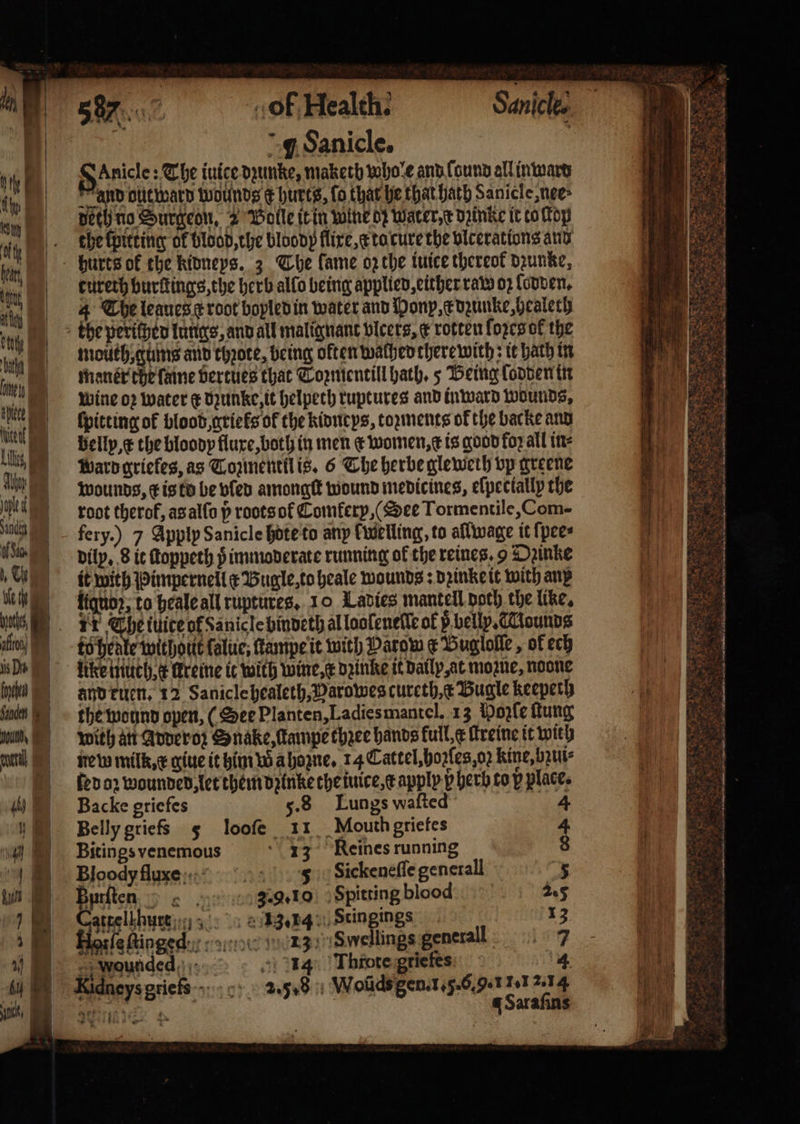 587 of Health. Sanicle.
¶ Sanicle.
SAnicle: The iuice drunke, maketh whole and sound all inward
and outward wounds & hurts, so that he that hath Sanicle, nee-
deth no Surgeon. 2 Boile it in wine or water, & drinke it to stop
the spitting of blood, the bloody flixe, & to cure the vlcerations and
hurts of the kidneys. 3 The same or the iuice thereof drunke,
cureth burstings, the herb also being applied, either raw or sodden.
4 The leaues & root boyled in water and Hony, & drunke, healeth
the perished lungs, and all malignant vlcers, & rotten sores of the
mouth, gums and throte, being often washed therewith: it hath in
maner the same vertues that Tormentill hath. 5 Being sodden in
wine or water & drunke, it helpeth ruptures and inward wounds,
spitting of blood, griefs of the kidneys, torments of the backe and
belly, & the bloody fluxe, both in men & women, & is good for all in-
ward griefes, as Tormentil is. 6 The herbe gleweth vp greene
wounds, & is to be vsed amongst wound medicines, especially the
root therof, as also þ roots of Comfery, (See Tormentile, Com-
fery.) 7 Apply Sanicle hote to any swelling, to asswage it spee-
dily. 8 it stoppeth þ immoderate running of the reines. 9 Drinke
it with Pimpernell & Bugle, to heale wounds: drinke it with any
liquor, to heale all ruptures. 10 Ladies mantell doth the like.
11 The iuice of Sanicle bindeth al loosenesse of þ belly. Wounds
to heale without salue, stampe it with Yarow & Buglosse, of ech
like much, & streine it with wine, & drinke it daily, at morne, noone
and euen. 12 Sanicle healeth, Yarowes cureth, & Bugle keepeth
the wound open, (See Planten, Ladiesmantel. 13 Horse stung
with an Adder or Snake, stampe three hands full, & streine it with
new milk, & giue it him wt a horne. 14 Cattel, horses, or kine, brui-
sed or wounded, let them drinke the iuice, & apply þ herb to þ place.
Backe griefes 5.8 Lungs wasted 4
Belly griefs 5 loose 11 Mouth griefes 4
Bitings venemous 13 Reines running 8
Bloody fluxe 5 Sickenesse generall 5
Bursten 3.9.10 Spitting blood 2.5
Cattell hurt 13.14 Stingings 13
Horse stinged 13 Swellings generall 7
wounded 14 Throte griefes 4
Kidneys griefs 2.5.8 Woũds gen. 1.5.6.9.11.12.14
¶ Sarafins